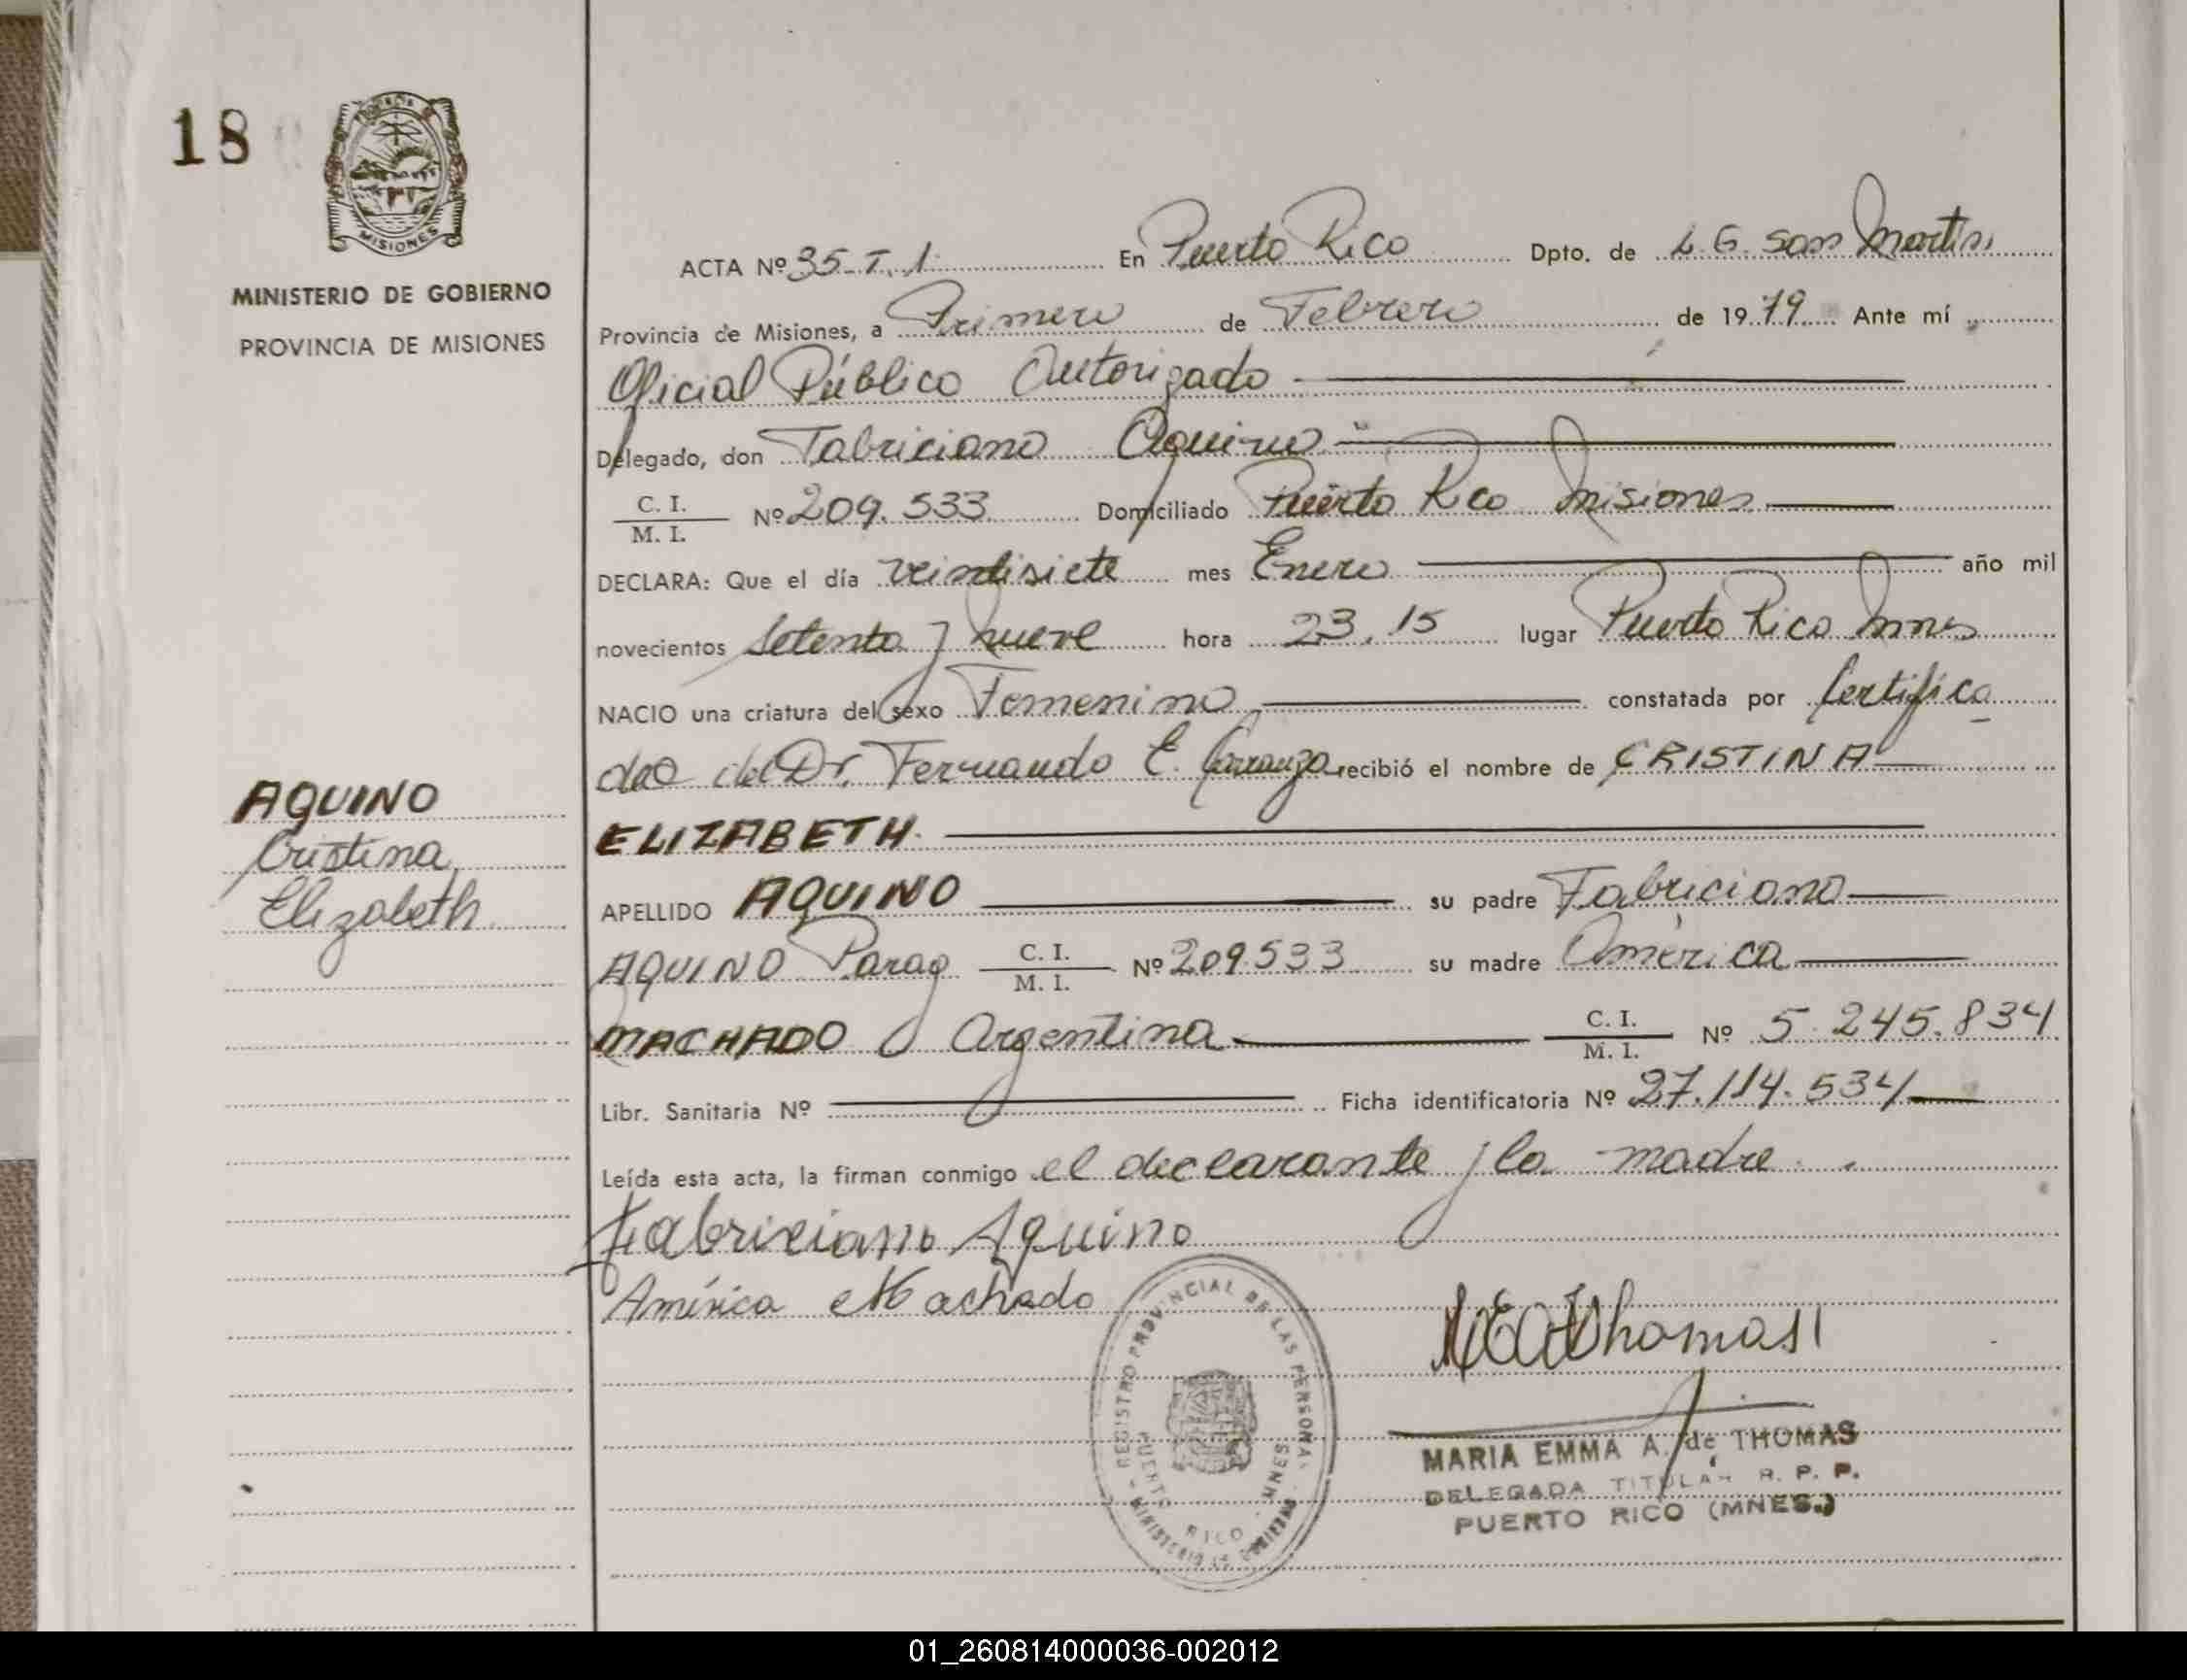 18
PROVINCIA DE
MISIONES
MINISTERIO DE GOBIERNO
PROVINCIA DE MISIONES
AQUINO
Cristina
Elizabeth
ACTA Nº 35-T. 1. En Puerto Rico Dpto. de L. G. San Martin
Provincia de Misiones, a Primero de Febrero de 1979 Ante mí
Oficial Público Autorizado
Delegado, don Fabriciano Aquino
C. I.
M. I. Nº 209.533 Domiciliado Puerto Rico Misiones
DECLARA: Que el día veintisiete mes Enero año mil
novecientos setenta y nueve hora 23.15 lugar Puerto Rico Mnes
NACIO una criatura del sexo Femenino constatada por Certifica
do del Dr. Fernando E. Carranza recibió el nombre de CRISTINA
ELIZABETH
APELLIDO AQUINO su padre Fabriciano
AQUINO Parag C. I.
M. I. Nº 209.533 su madre América
MACHADO Argentina C. I.
M. I. Nº 5.245.834
Libr. Sanitaria Nº Ficha identificatoria Nº 27.114.534
Leída esta acta, la firman conmigo el declarante y la madre.
Fabriciano Aquino
América Machado
REGISTRO PROVINCIAL DE LAS PERSONAS
PUERTO RICO - MNES
MINISTERIO DE GOBIERNO
MARIA EMMA A. de THOMAS
DELEGADA TITULAR R. P. P.
PUERTO RICO (MNES.)
01_260814000036-002012